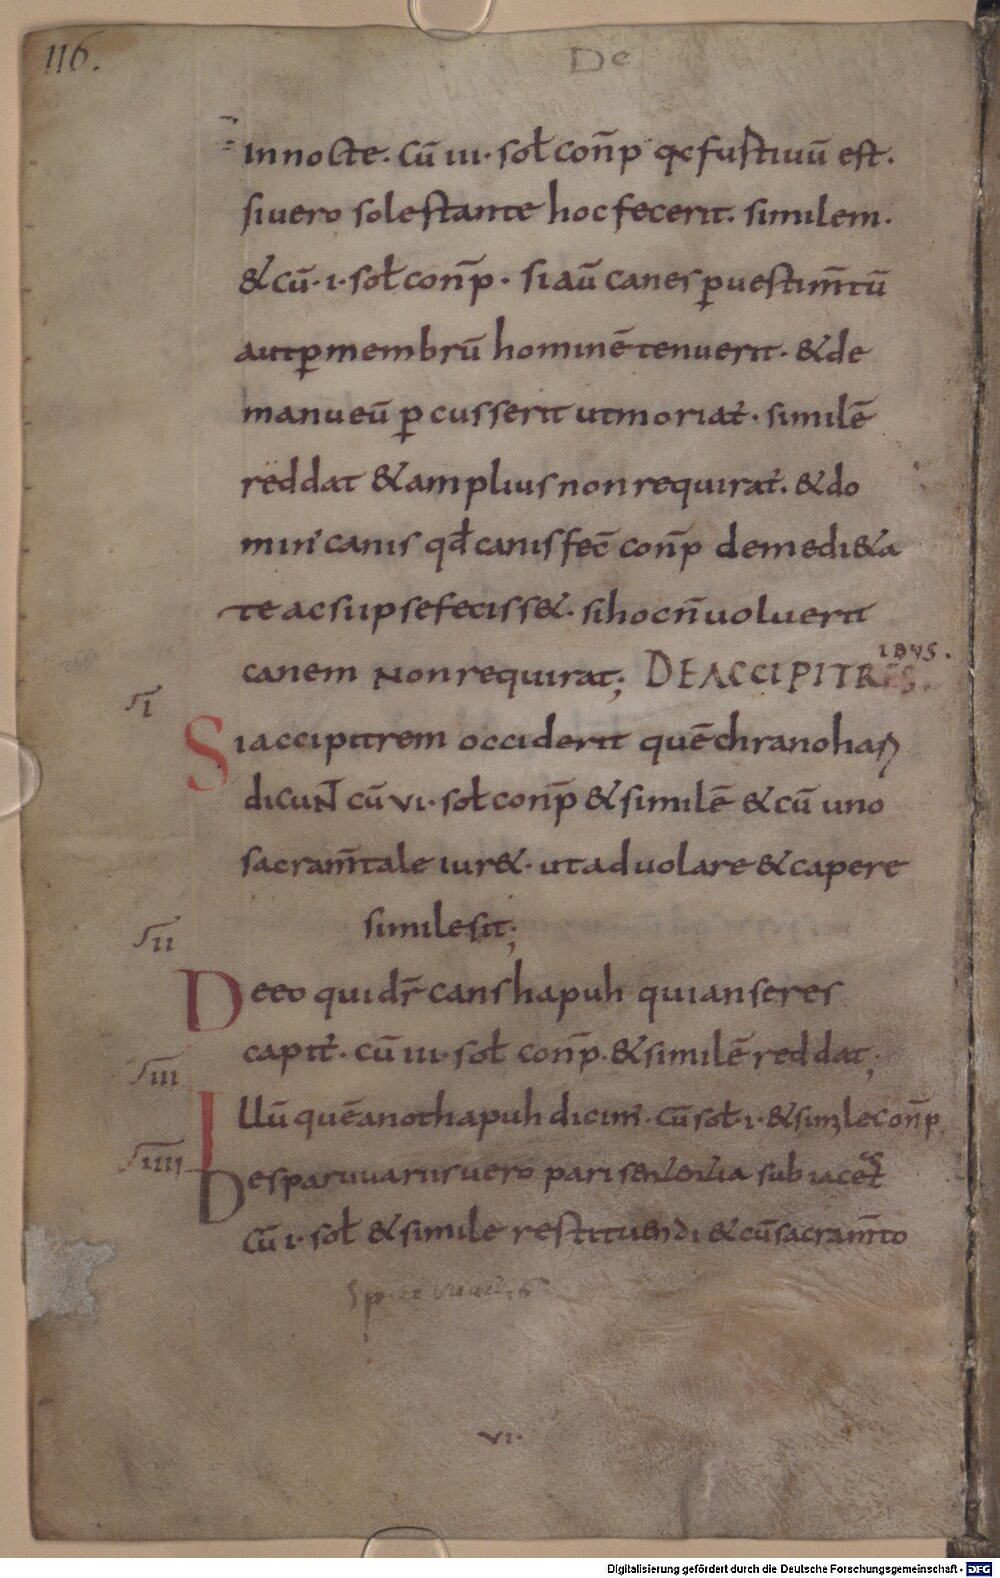 116.
De
In nocte. cū iii. sol conp̄ qc fustiuū est.
si uero sole stante hoc fecerit. similem.
& cū. i. sol conp̄. si aū canes p uestim̄tū
aut p membrū hominē tenuerit. & de
manu eū p cusserit ut moriat. similē
reddat & amplius non requirat. & do
min canis qd canis fec̄ conp̄ de medi&a
te ac si ipse feciss&. si hoc n̄ uoluerit
canem Non requirat; DE ACCIPITRES.
IBVS.
ſ I
Si accipitrem occiderit quē chranohari
dicunt cū vi. sol conp̄ & similē & cū uno
sacram̄tale iur&. ut ad uolare & capere
simile sit;
ſ II
De eo qui dr̄ canshapuh qui anseres
capit. cū iii. sol conp̄. & similē reddat;
ſ III
Illū quē anothapuh dicim. cū sol. i. & simile conp̄
ſ IIII
De sparuuariis uero pari sententia sub iacet
cū i. sol & simile restituendi & cū sacram̄to
vi.
Digitalisierung gefördert durch die Deutsche Forschungsgemeinschaft - DFG